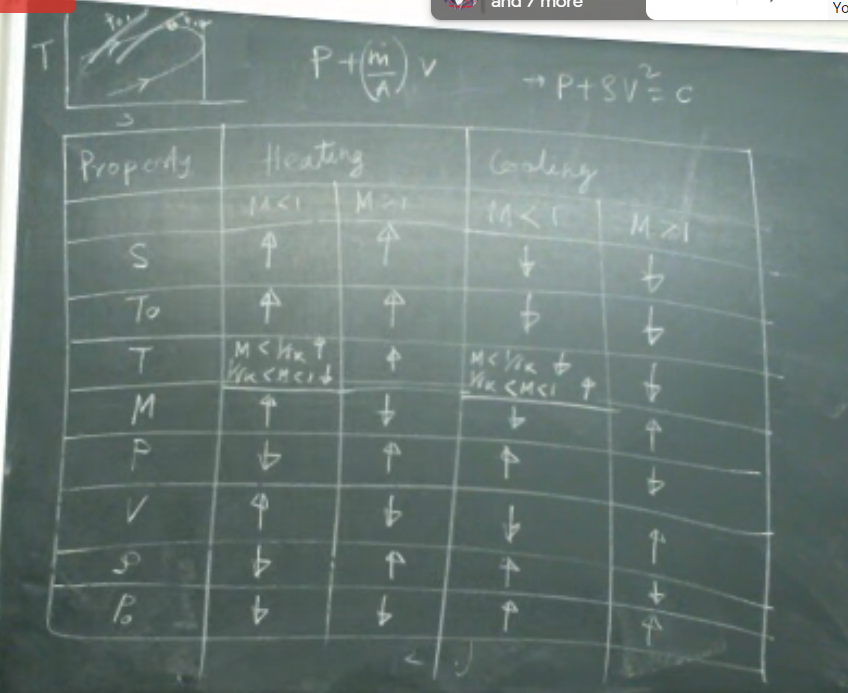 and 7 more
Yo
T
S
P + (ṁ/A) V
→ P + ρV² = C
Property Heating Cooling
M<1 M>1 M<1 M>1
S ↑ ↑ ↓ ↓
To ↑ ↑ ↓ ↓
T M<1/√k ↑ ↑ M<1/√k ↓ ↓
1/√k<M<1 ↓ 1/√k<M<1 ↑
M ↑ ↓ ↓ ↑
P ↓ ↑ ↑ ↓
V ↑ ↓ ↓ ↑
ρ ↓ ↑ ↑ ↓
Po ↓ ↓ ↑ ↑